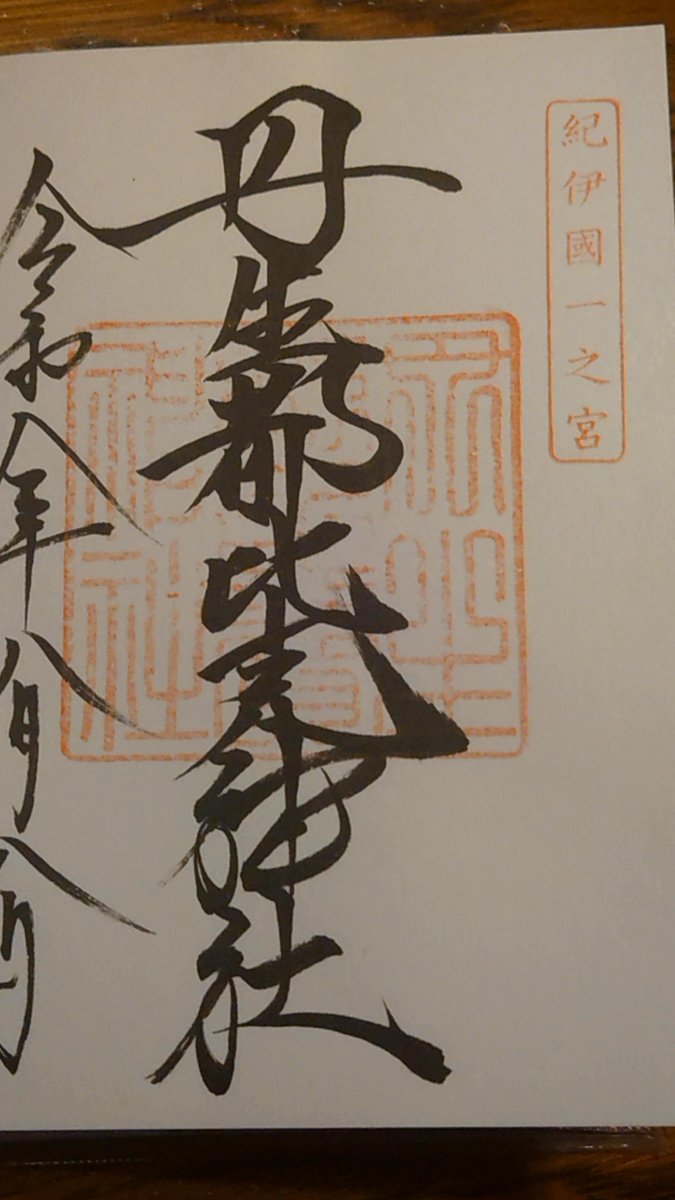 紀伊國一之宮
丹生都比売神社
令和八年八月八日